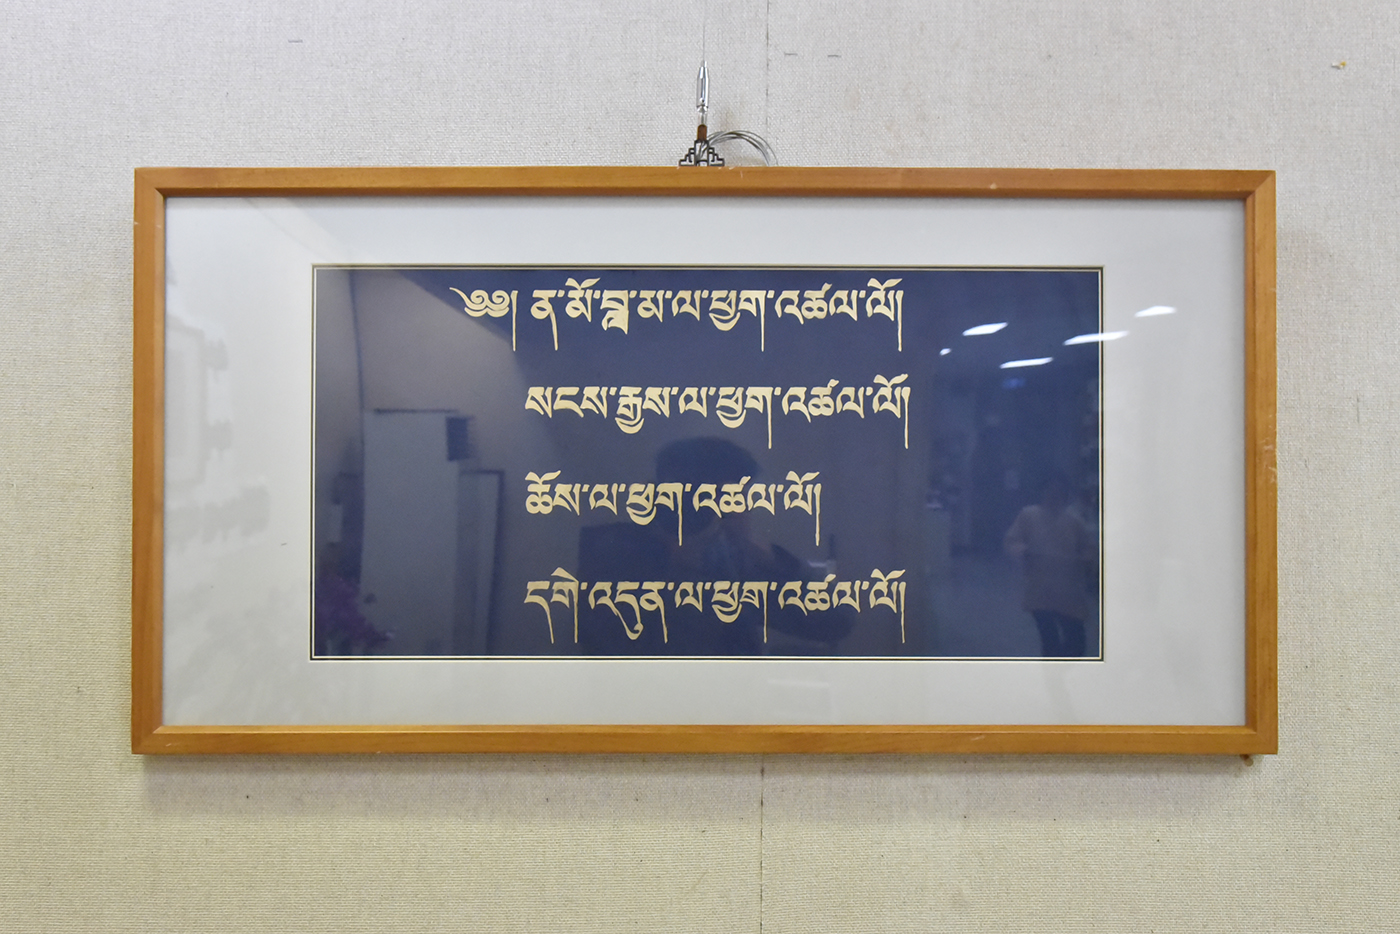 ༄༅། ན་མོ་བླ་མ་ལ་ཕྱག་འཚལ་ལོ།
སངས་རྒྱས་ལ་ཕྱག་འཚལ་ལོ།
ཆོས་ལ་ཕྱག་འཚལ་ལོ།
དགེ་འདུན་ལ་ཕྱག་འཚལ་ལོ།